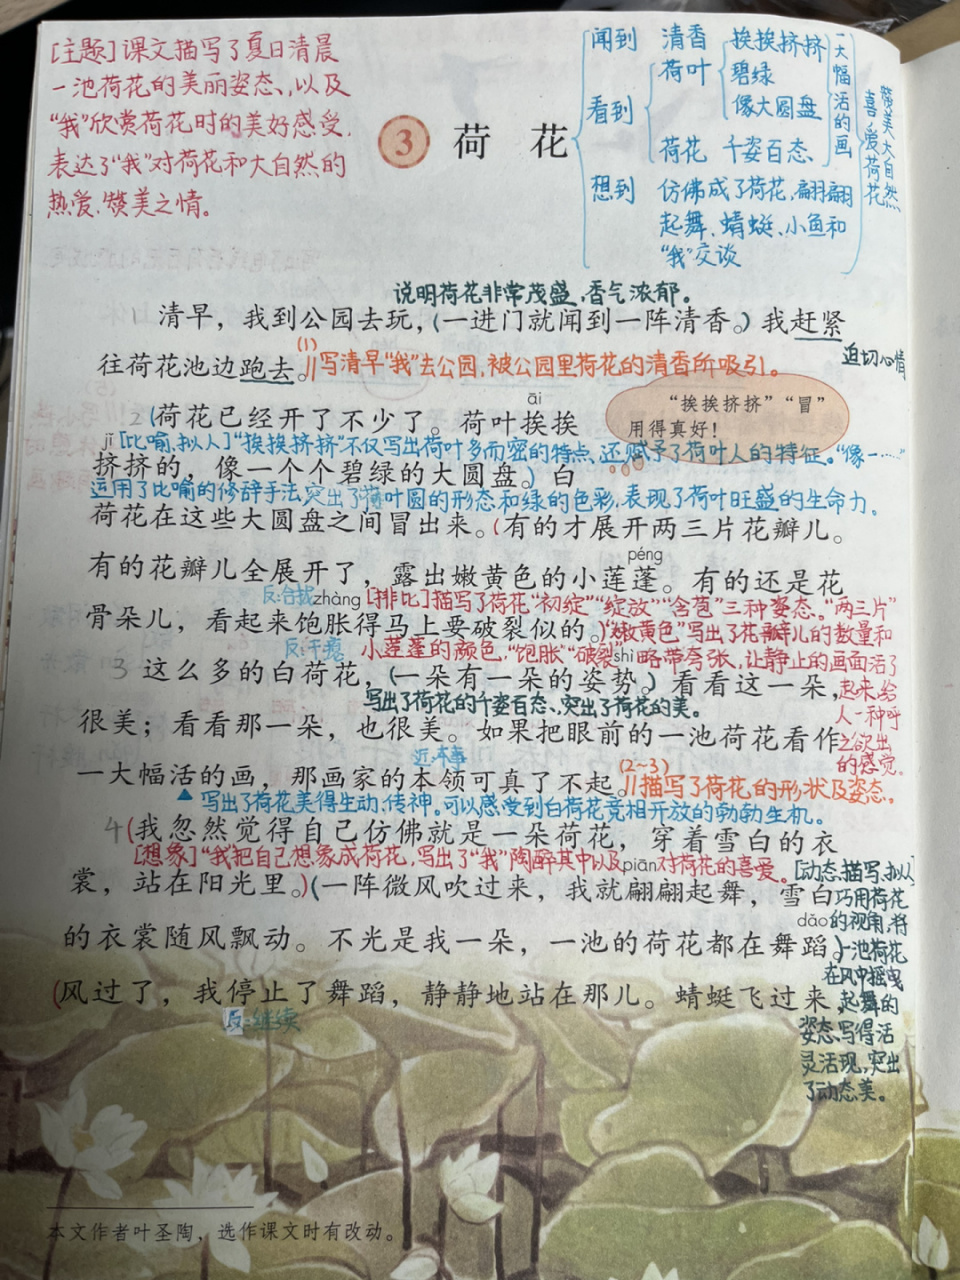 [主题]课文描写了夏日清晨
一池荷花的美丽姿态,以及
“我”欣赏荷花时的美好感受,
表达了“我”对荷花和大自然的
热爱、赞美之情。
3 荷花
闻到 清香
看到 荷叶 挨挨挤挤
碧绿
像大圆盘
荷花 千姿百态
想到 仿佛成了荷花,翩翩
起舞、蜻蜓、小鱼和
“我”交谈
一大幅活的画
喜爱荷花
赞美大自然
说明荷花非常茂盛,香气浓郁。
1 清早，我到公园去玩，(一进门就闻到一阵清香。)我赶紧
迫切心情
往荷花池边跑去。(1)‖写清早“我”去公园,被公园里荷花的清香所吸引。
“挨挨挤挤”“冒”
用得真好！
āi
2 (荷花已经开了不少了。荷叶挨挨
jǐ [比喻、拟人]“挨挨挤挤”不仅写出荷叶多而密的特点,还赋予了荷叶人的特征。“像一……”
挤挤的，像一个个碧绿的大圆盘。)白
运用了比喻的修辞手法,突出了荷叶圆的形态和绿的色彩,表现了荷叶旺盛的生命力。
荷花在这些大圆盘之间冒出来。(有的才展开两三片花瓣儿。
péng
有的花瓣儿全展开了，露出嫩黄色的小莲蓬。有的还是花
反:合拢 zhàng [排比]描写了荷花“初绽”“绽放”“含苞”三种姿态。“两三片”
骨朵儿，看起来饱胀得马上要破裂似的。)“嫩黄色”写出了花瓣儿的数量和
反:干瘪 小莲蓬的颜色,“饱胀”“破裂”shì略带夸张,让静止的画面活了
3 这么多的白荷花，(一朵有一朵的姿势。)看看这一朵，
起来,给
人一种呼
之欲出
的感觉。
写出了荷花的千姿百态、突出了荷花的美。
很美；看看那一朵，也很美。如果把眼前的一池荷花看作
近:本事
一大幅活的画，那画家的本领可真了不起。(2~3)‖描写了荷花的形状及姿态。
▲写出了荷花美得生动、传神。可以感受到白荷花竞相开放的勃勃生机。
4 (我忽然觉得自己仿佛就是一朵荷花，穿着雪白的衣
[想象]“我把自己想象成荷花,写出了“我”陶醉其中以及piān对荷花的喜爱。
裳，站在阳光里。)(一阵微风吹过来，我就翩翩起舞，雪白
dǎo
的衣裳随风飘动。不光是我一朵，一池的荷花都在舞蹈。)
[动态描写、拟人]
巧用荷花
的视角,将
一池荷花
在风中摇曳
起舞的
姿态,写得活
灵活现,突出
了动态美。
(风过了，我停止了舞蹈，静静地站在那儿。蜻蜓飞过来，
反:继续
本文作者叶圣陶，选作课文时有改动。